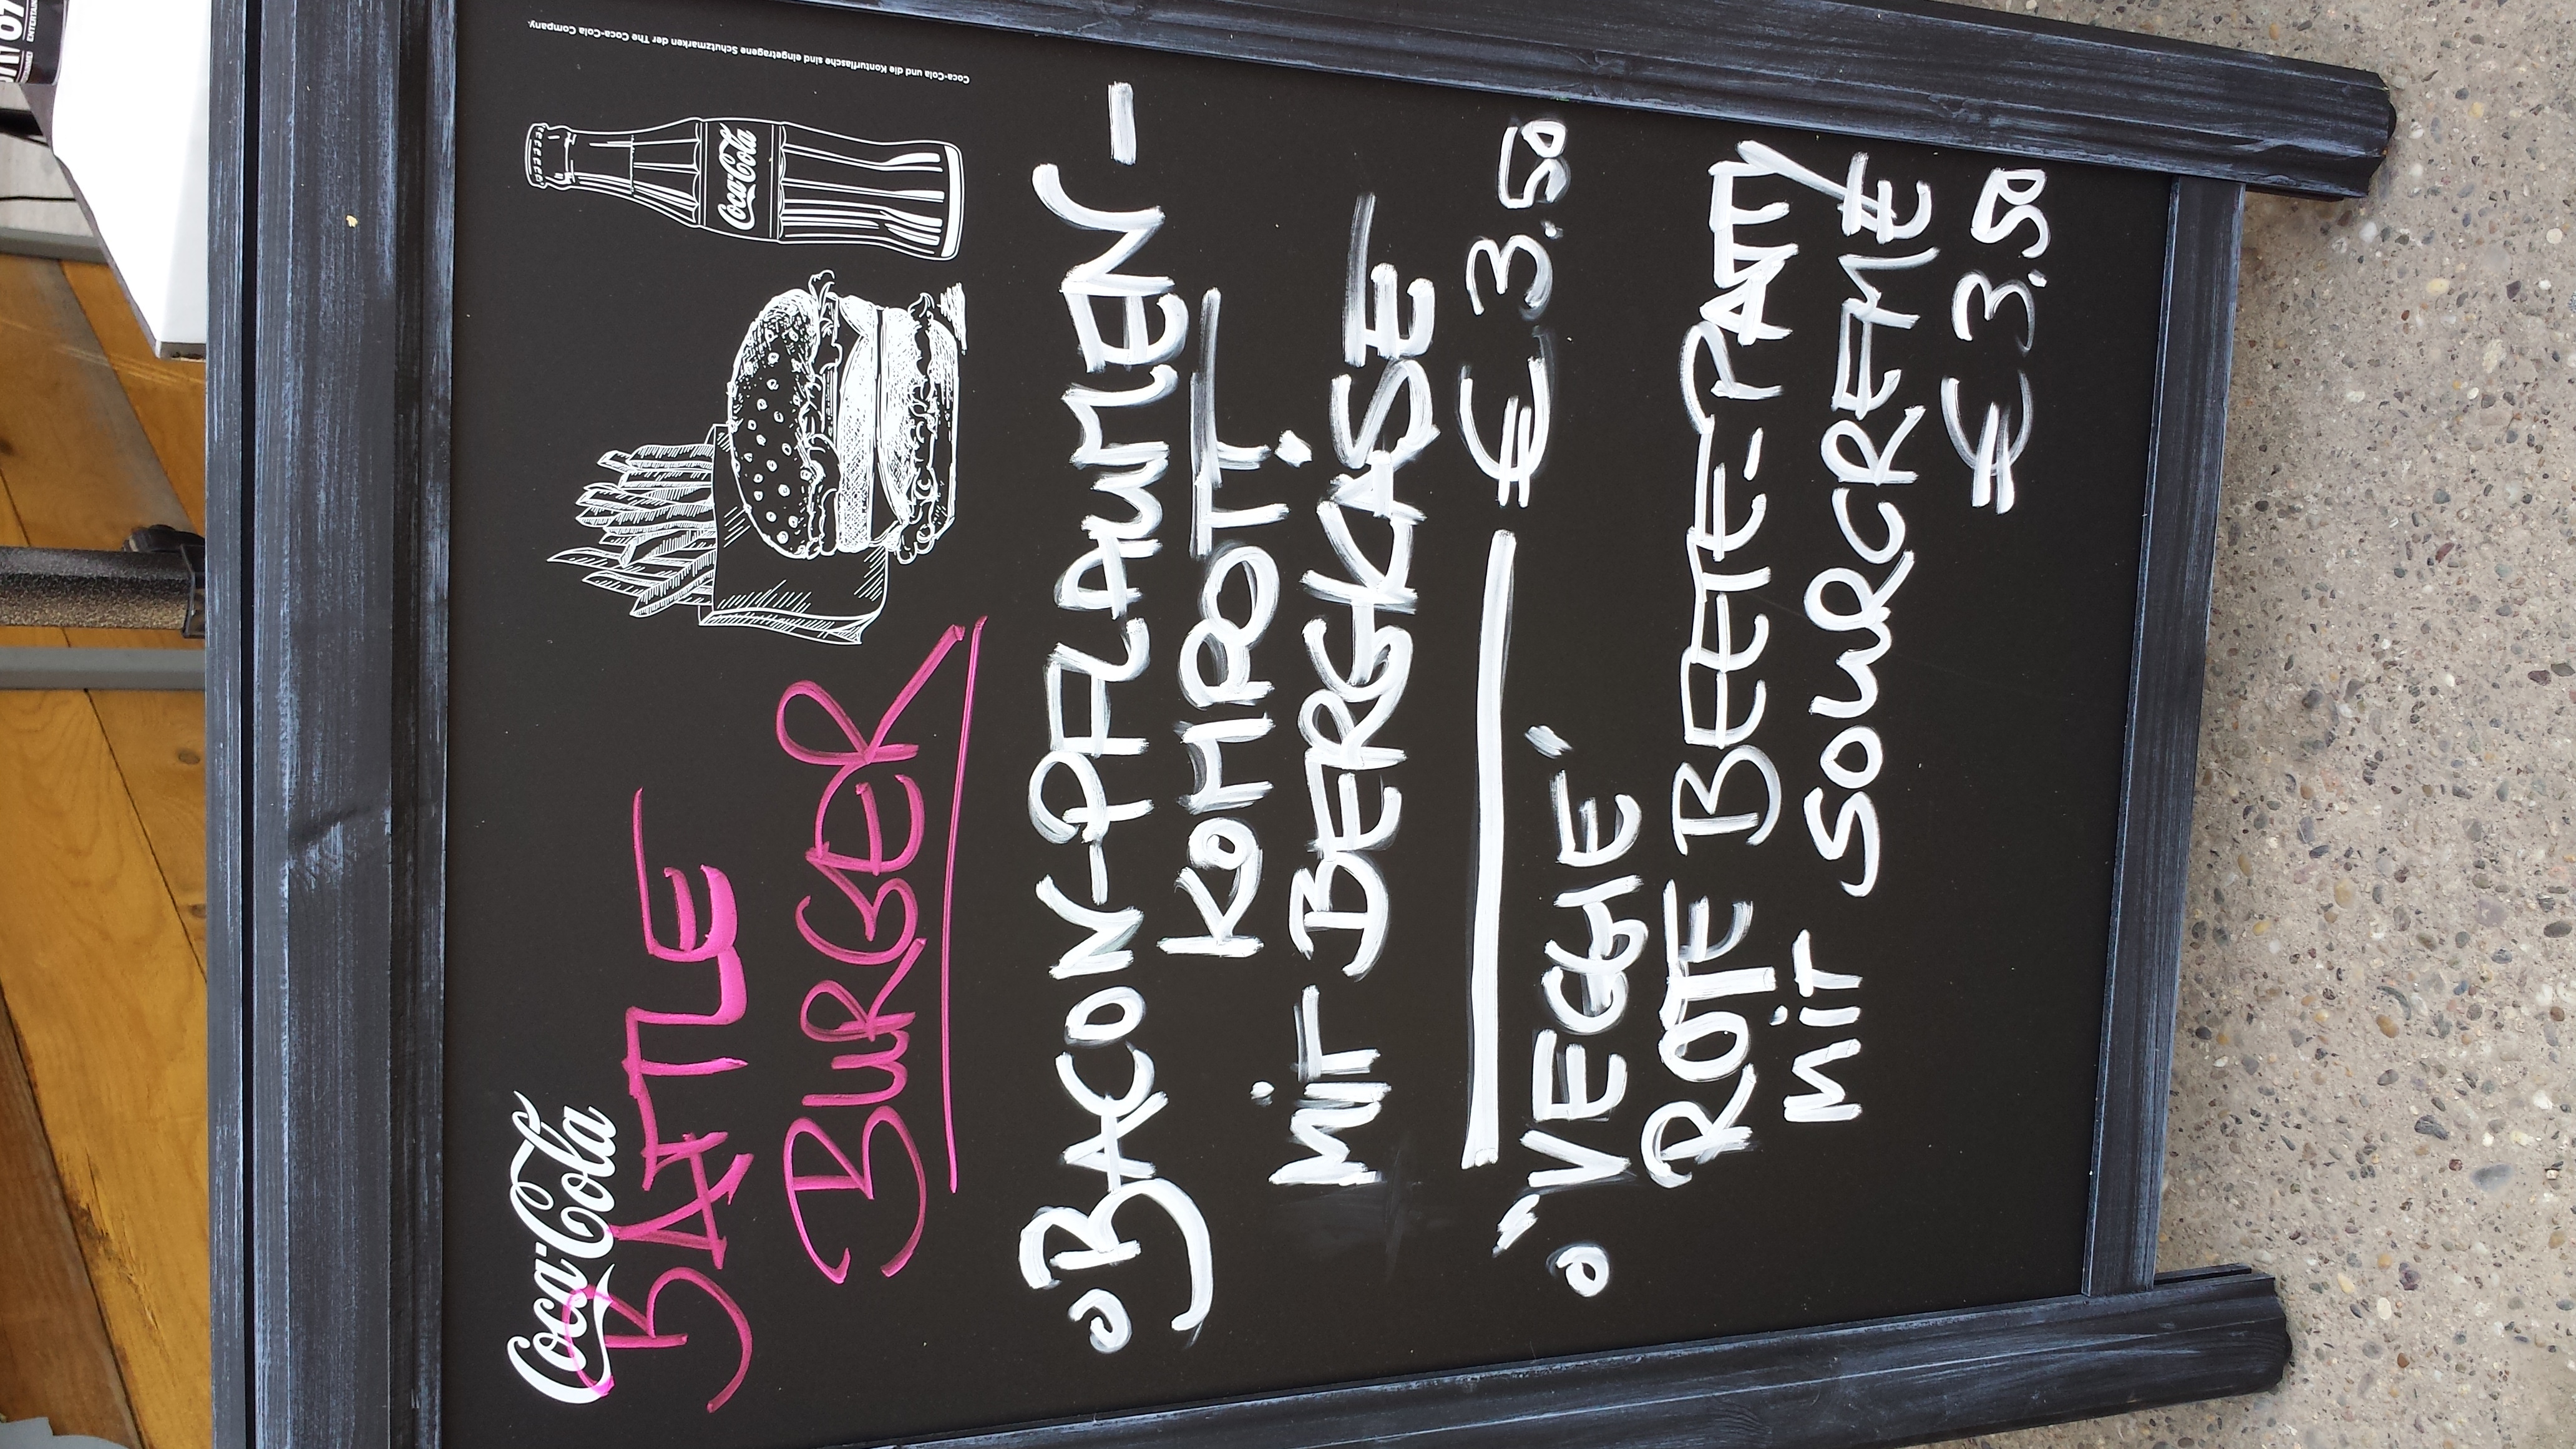 Coca-Cola
BATTLE
BURGER
Coca-Cola
Coca-Cola und die Konturflasche sind eingetragene Schutzmarken der The Coca-Cola Company.
o BACON-PFLAUMEN-
KOHIROTT.
MIT BERGKASE
€ 3.50
o "VEGGIE"
ROTE BEETE-PATTY
MIT SOURCREME
€ 3.50